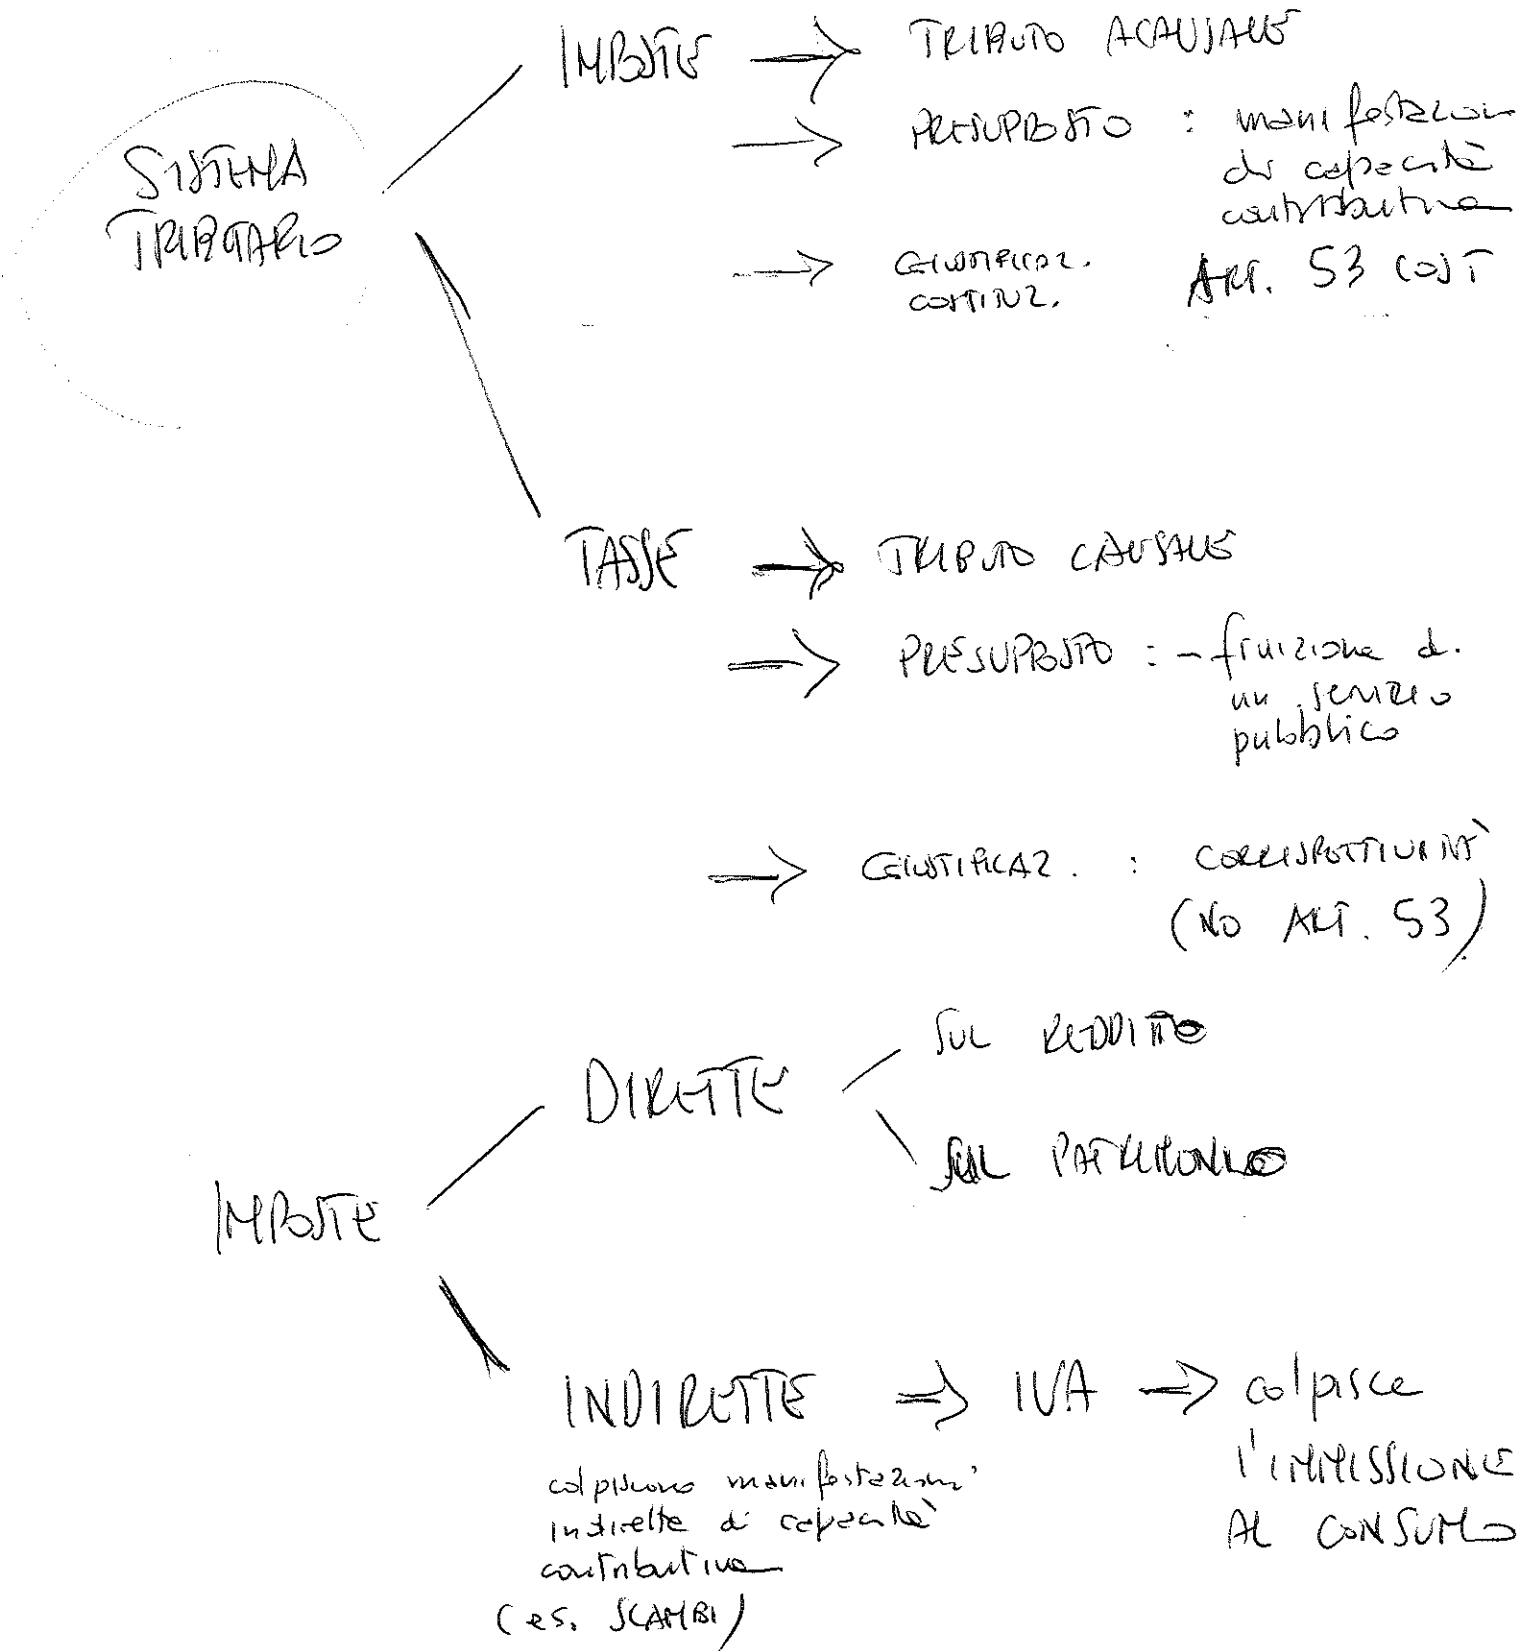 SISTEMA
TRIBUTARIO
IMPOSTE → TRIBUTO ACAUSALE
→ PRESUPPOSTO : manifestazion
di capacità
contributiva
→ GIUSTIFICAZ. ART. 53 COST
COSTITUZ.
TASSE → TRIBUTO CAUSALE
→ PRESUPPOSTO : - fruizione di
un servizio
pubblico
→ GIUSTIFICAZ. : CORRISPETTIVITÀ
(NO ART. 53)
IMPOSTE
DIRETTE
SUL REDDITO
SUL PATRIMONIO
INDIRETTE ⇒ IVA → colpisce
l'IMMISSIONE
AL CONSUMO
colpiscono manifestazioni
indirette di capacità
contributiva
(es. SCAMBI)